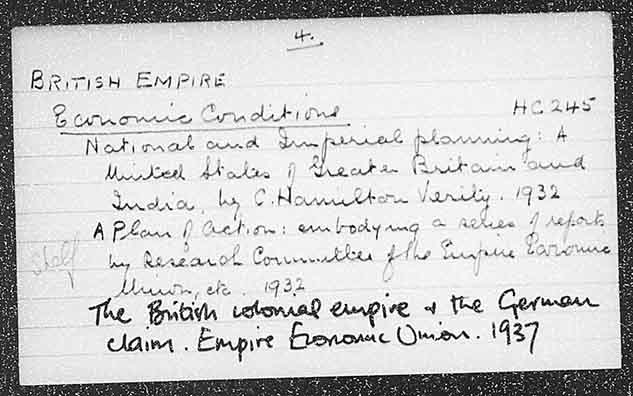 4.
BRITISH EMPIRE
Economic Conditions HC 245
National and Imperial planning: A
United States of Greater Britain and
India, by C. Hamilton Verity. 1932
A Plan of action: embodying a series of reports
Staff by Research Committee of the Empire Economic
Union, etc. 1932
The British colonial empire & the German
claim. Empire Economic Union. 1937